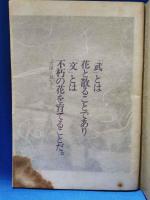 「武」とは
花と散ることであり
「文」とは
不朽の花を育てることだ。